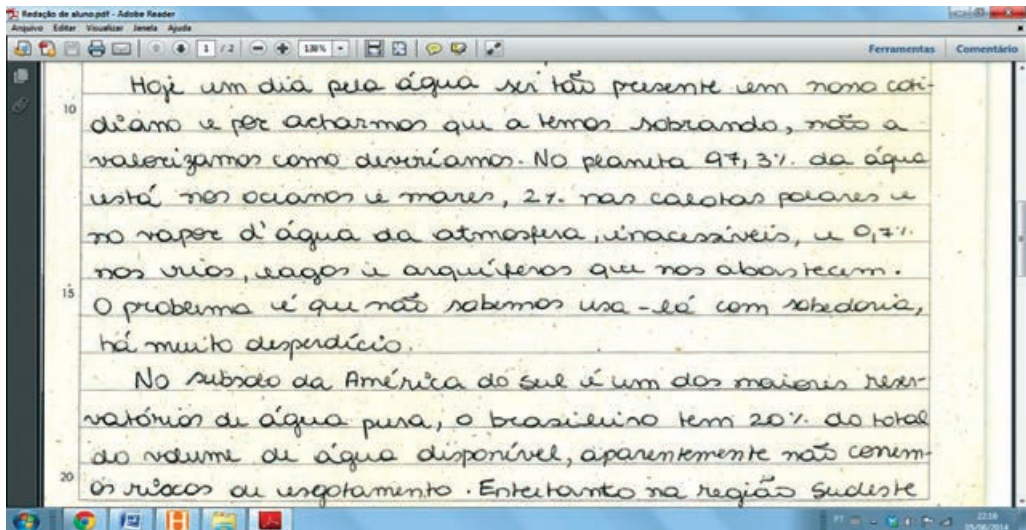 Redação de aluno.pdf - Adobe Reader
Arquivo Editar Visualizar Janela Ajuda
1 / 2 138% Ferramentas Comentário
Hoje um dia pela água ser tão presente em nosso coti-
10
diano e por acharmos que a temos sobrando, não a
valorizamos como deveríamos. No planeta 97,3% da água
está nos oceanos e mares, 2% nas calotas polares e
no vapor d'água da atmosfera, inacessíveis, e 0,7%
nos rios, lagos e arquíferos que nos abastecem.
15
O problema é que não sabemos usa-lá com sabedoria,
há muito desperdício.
No subsolo da América do sul é um dos maiores reser-
vatórios de água pura, o brasileiro tem 20% do total
do volume de água disponível, aparentemente não correm
20
os riscos de esgotamento. Entertanto na região sudeste
PT 22:16
05/06/2014